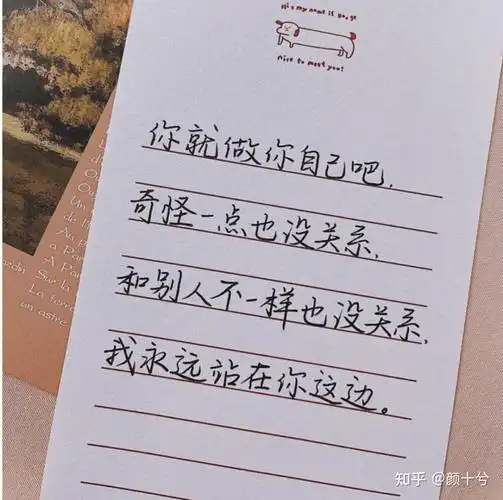 Hi's my name is
Nice to meet you!
你就做你自己吧，
奇怪一点也没关系，
和别人不一样也没关系，
我永远站在你这边。
Au p
a Par
A Pa
Sur la
La terre
un astre
知乎 @颜十兮